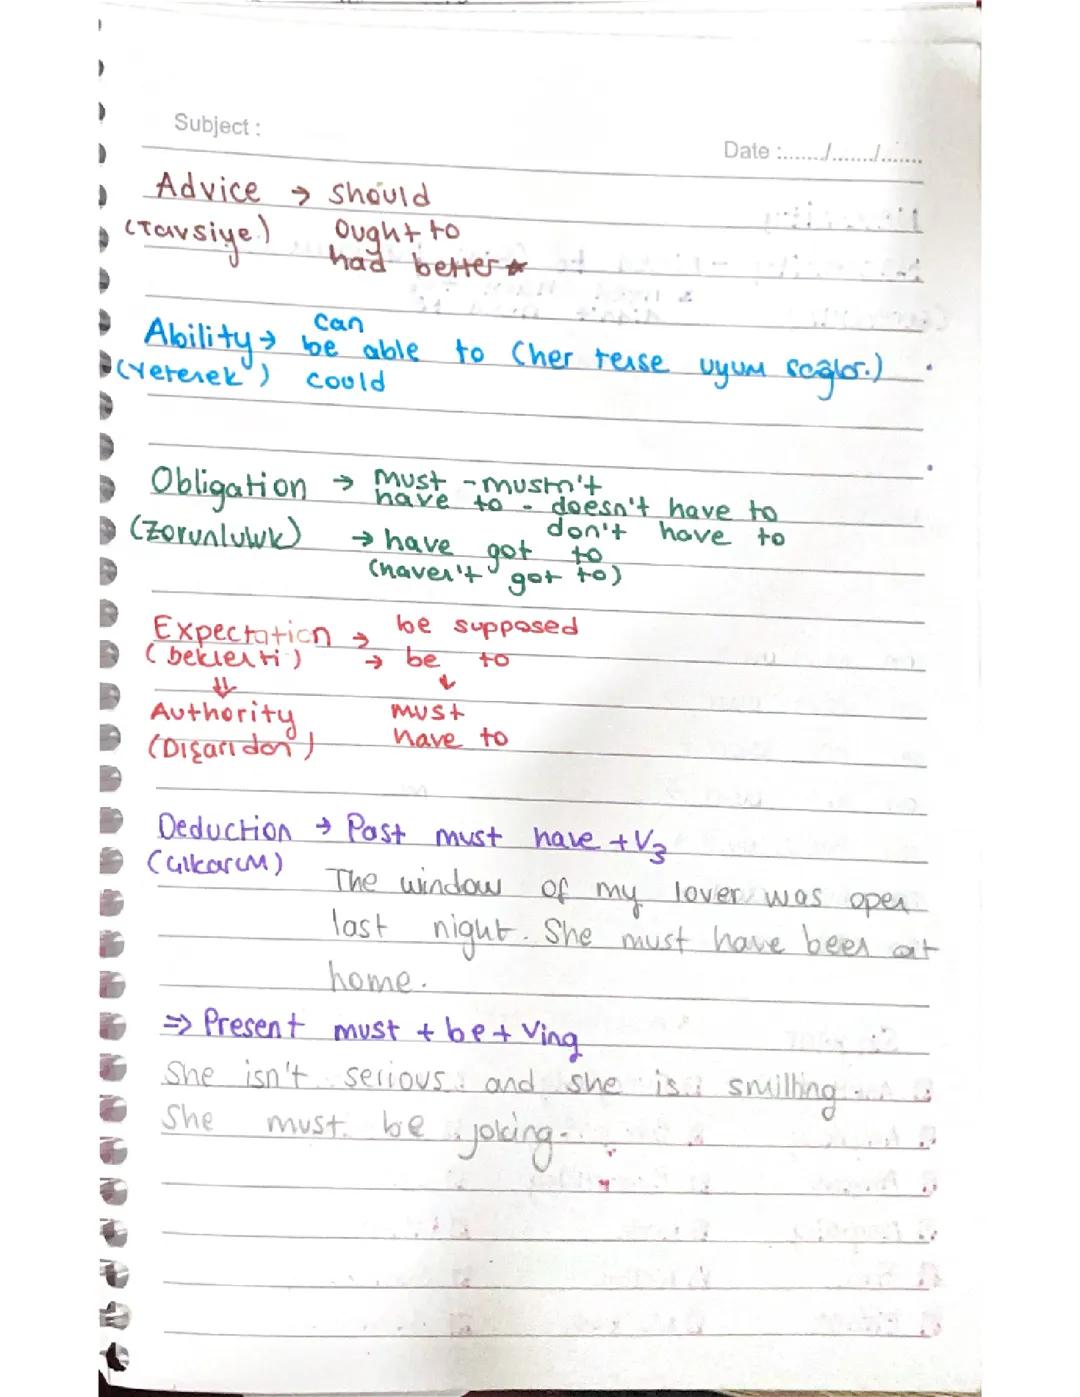 Subject :
Date :......./......./.......
Advice → should
(Tavsiye) ought to
had better ★
can
Ability → be able to (her tense uyum sağlar.)
(Yetenek) could
Obligation → must - mustn't
have to - doesn't have to
(Zorunluluk) don't have to
→ have got to
(haven't got to)
Expectation → be supposed
(beklenti) → be to
⇓ ↓
Authority must
(Dışarıdan) have to
Deduction → Past must have + V3
(Çıkarım)
The window of my lover was open
last night. She must have been at
home.
⇒ Present must + be + Ving
She isn't serious and she is smilling.
She must be joking.